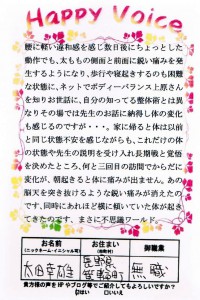 Happy Voice
腰に軽い違和感を感じ数日後にちょっとした
動作でも、太ももの側面と前面に鋭い痛みを発
生するようになり、歩行や寝起きするのも困難
な状態に、ネットでボディーバランス上原さん
を知りお世話に、自分の知ってる整体術とは異
なりその場では先生のお話に納得し体の変化
も感じるのですが・・・。家に帰ると体は以前
と同じ状態不安を感じながらも、これだけの体
の状態や先生の説明を受け入れ長期戦と覚悟
を決めたところ、何と三回目の訪問でからだに
変化が、朝起きると体に痛みが出ません。あの
脳天を突き抜けるような鋭い痛みが消えたので
す、同時にあれほど横に傾いていた体が起き
てきたのです、まさに不思議ワールド。
お名前
(ニックネーム・イニシャル可)
お住まい
(市町村)
御職業
太田幸雄
長野県
無職
貴方様の声をHPやブログ等でご紹介してもよろしいですか?
はい □いいえ